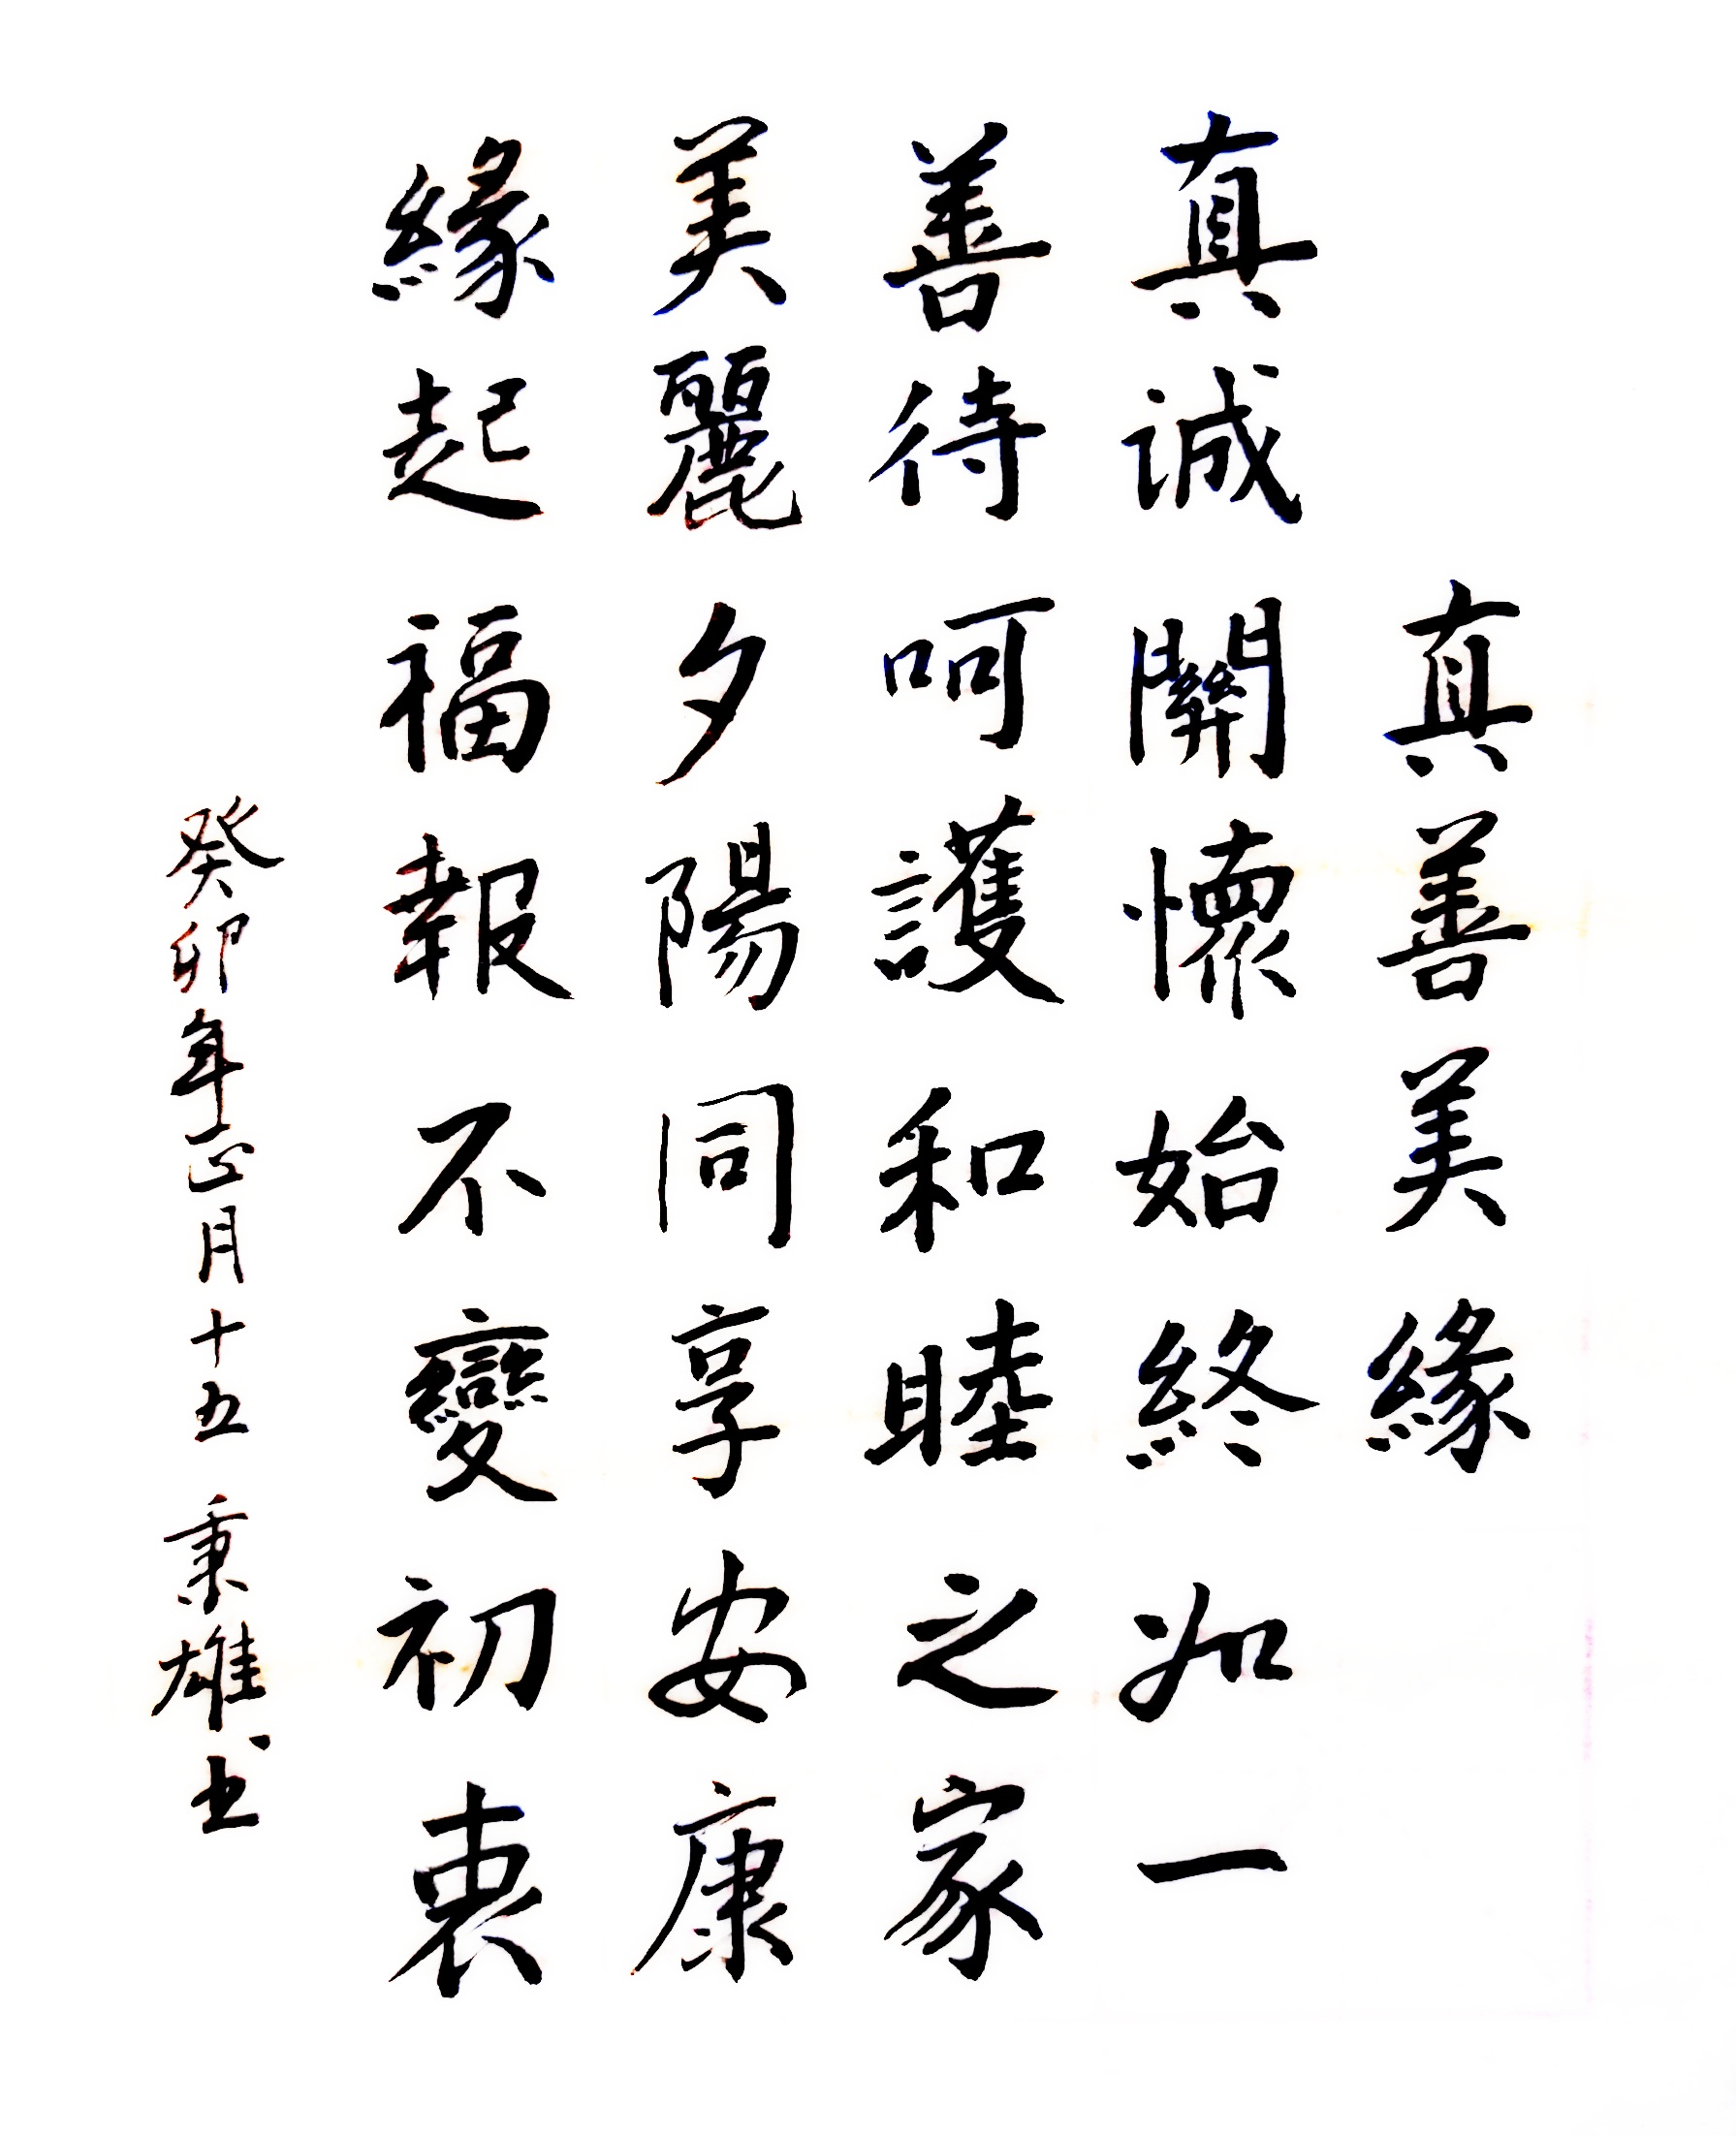 真善美緣
真诚關懷始終如一
善待呵護和睦之家
美麗夕陽同享安康
緣起福報不變初衷
癸卯年正月十五 秉雄书